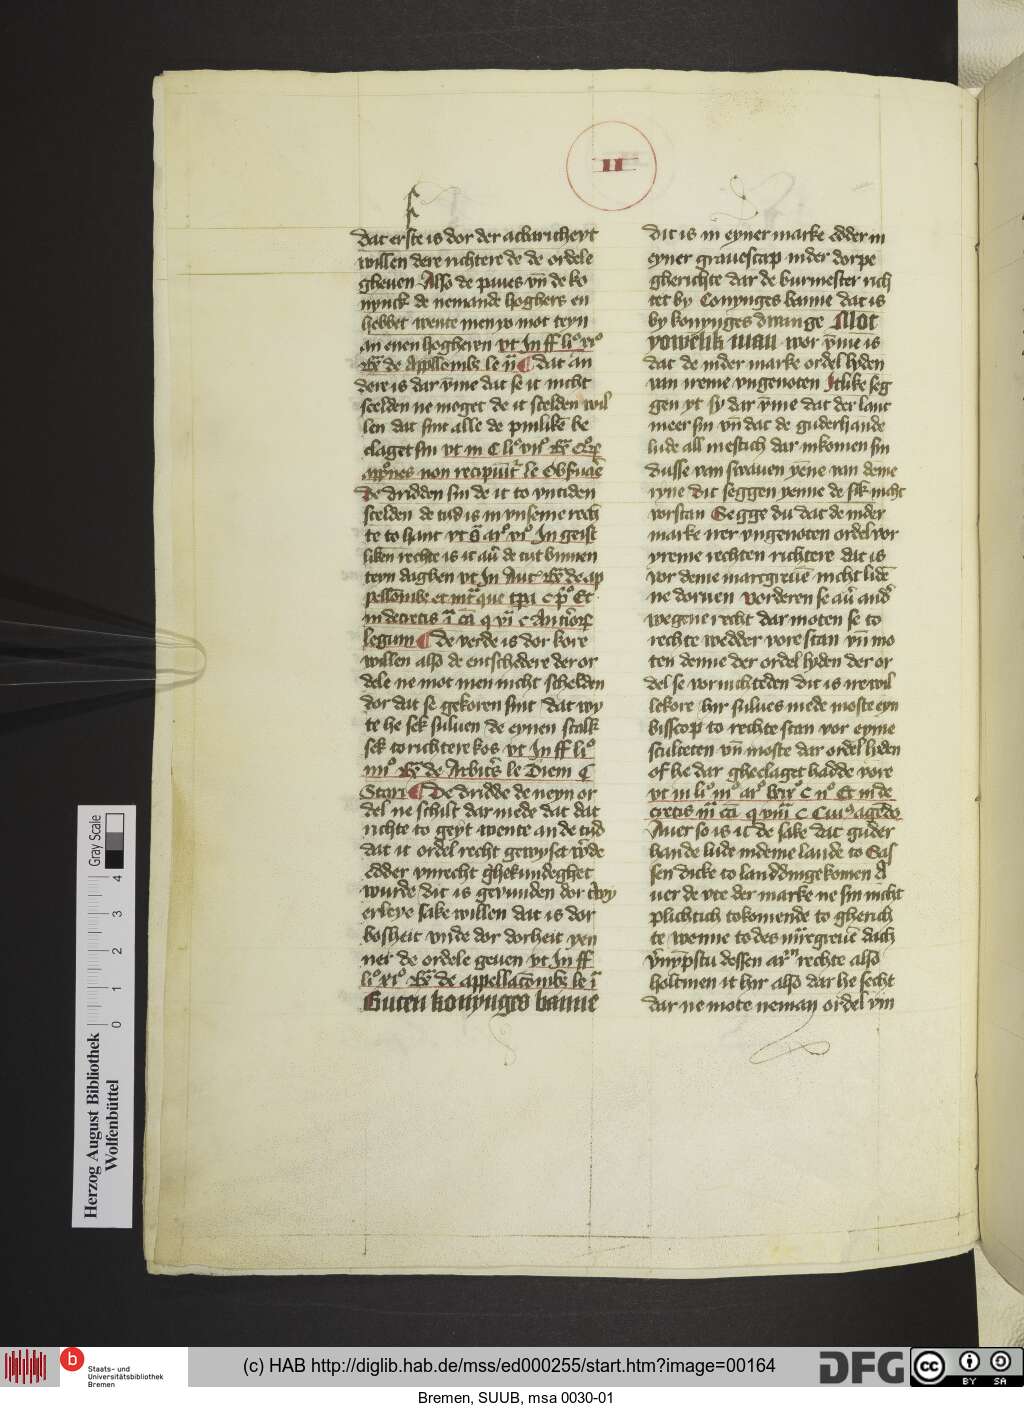 II
dat erste is dor der achtaricheyt
willen dere richtere de de ordele
gheuen Also de paues vn̄ de ko
nynck de nemande hoghers en
hebbet wente men yo mot teyn
an enen hogheren vt In ff li°
dat an
dere is dar v̄me dat se it nicht
scelden ne moget de it scelden wil
len dat sint alle de pinliken be
claget sin vt in C li° vii°
non recipiūt
De dridden sin de it to vntiden
scelden de tud is in vnseme rech
te to hant
liken rechte is it au̅ de tut binnen
teyn daghen vt In Aut
et in
in decretis
legum de verde is dor kore
willen also de entschedere der or
dele ne mot men nicht schelden
dor dat se gekoren sint dat wy
te he sek suluen de eynen scalk
sek to richtere kos vt In ff li°
iiii° de Arbitris le Diem C
Stari De dridde de neyn or
del ne schilt dar mede dat dat
richte to geyt wente an de tyd
dat it ordel recht gewyset w̄de
edder vnrecht ghekundeghet
wurde dit is gevunden dor twy
erleye sake willen dat is dor
bosheit vnde dor dorheit yen
ner de ordele geuen vt In ff
li° de
Guten konynges banne
dit is in eyner marke edder in
eyner grauescap in der dorpe
gherichte dar de burmester rich
tet by Conynges banne dat is
by konynges dwange Mot
yowelik man wor v̄me is
dat de in der marke ordel lyden
van ireme vngenoten Itlike seg
gen yt sy dar v̄me dat der lant
meer sin vn̄ dat de guderhande
lude all mestich dar inkomen sin
dusse van swauen yene van deme
ryne Dit seggen yenne de sik nicht
vorstan Segge du dat de in der
marke irer vngenoten ordel vor
yreme rechten richtere dat is
vor deme marcgreuen̄ nicht lide
ne doruen vorderen se au̅ and
wegene recht dar moten se to
rechte wedder vore stan vn̄ mo
ten denne der ordel lyden der or
del se vor nichteden dit is ire wil
lekore hir sulues mede moste eyn
bisscop to rechte stan vor eyme
sculteten vn̄ moste dar ordel lyden
of he dar gheclaget hadde vore
vt in li° iii° ar° lxix° C n° Et in de
cretis
Auer so is it de sake dat guder
hande lude in deme lande to Sas
sen dicke to landdinge komen
uer de vte der marke ne sin nicht
plichtich to komende to gherich
te wenne to des m̄rcgreuen̄ dach
dessen ar rechte also
holtmen it hir also dar he secht
dar ne mote neman ordel vin
Herzog August Bibliothek
Wolfenbüttel
Gray Scale
0 1 2 3 4
b
Staats- und
Universitätsbibliothek
Bremen
(c) HAB http://diglib.hab.de/mss/ed000255/start.htm?image=00164
DFG
cc BY SA
Bremen, SUUB, msa 0030-01